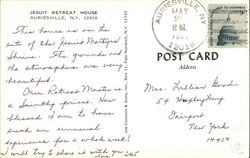 JESUIT RETREAT HOUSE
AURIESVILLE, N.Y. 12016
This house is on the
site of the Jesuit Martyrs'
Shrine. The grounds and
the atmosphere are very
beautiful.
Our Retreat Master is
a Saintly priest. How
blessed I am to have
such an unusual
experience for a whole week!
will try to share it with you
AURIESVILLE, N.Y.
MAY
PM
12016
POST CARD
Address
Mrs. Lillian Good
54
Fairport
New York
14450